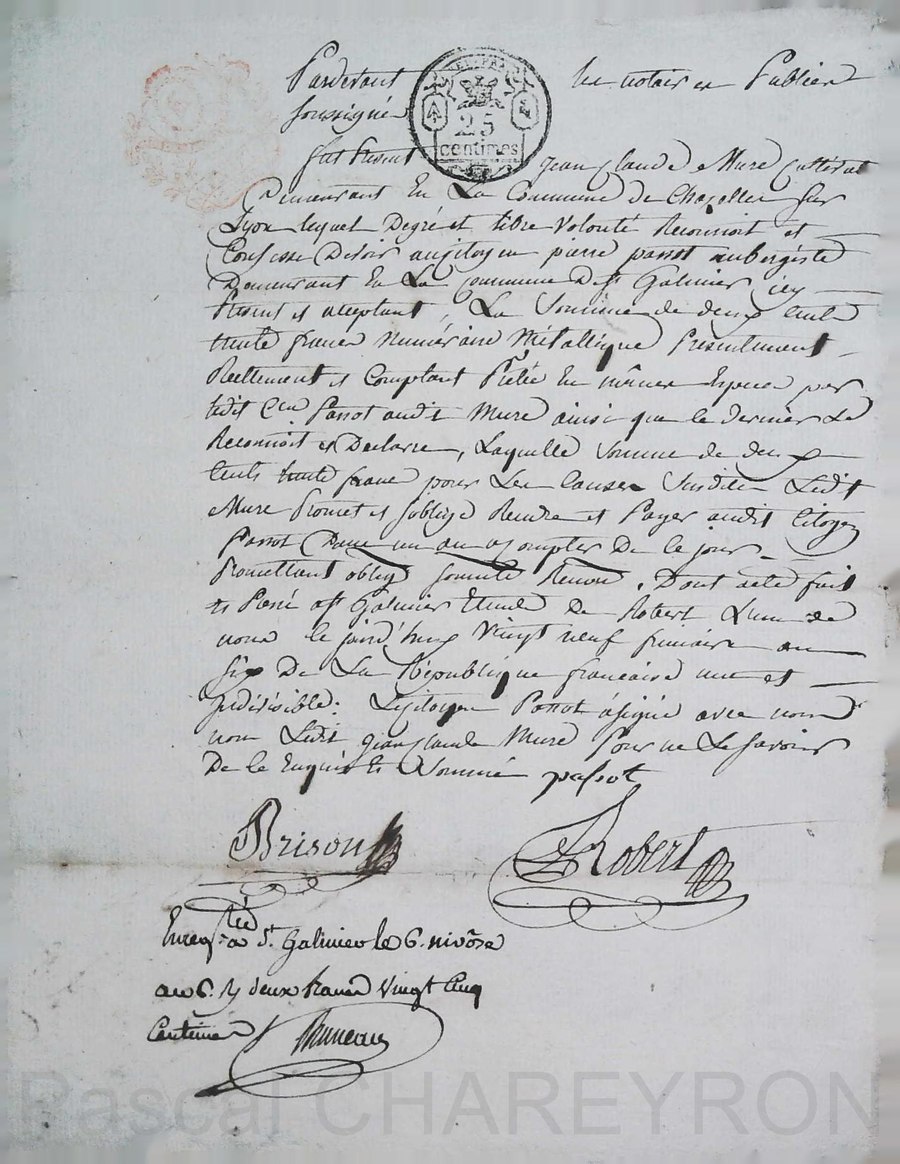 Pardevant les notaires Publics
RÉP. FRA.
25
centimes
soussignés
fut Présent Jean Claude Mure Cultivat
Demeurant En La Commune de Chazelles sur
Lyon lequel Degré et libre Volonté Reconnoit et
Confesse Devoir au citoyen pierre passot aubergiste
Demeurant En La Commune De St Galmier icy
Présent et aceptant, La Somme de deux Cents
trente francs Numéraire Métallique Présentement
Réellement et Comptant Prêtée En mêmes Espèces par
ledit Cen Passot audit Mure ainsi que le dernier Le
Reconnoit et Declare, Laquelle Somme de deux
Cents trente francs pour Les Causes Susdites Ledit
Mure Promet et s'oblige Rendre et Payer audit Citoyen
Passot Dans un an a Compter De ce jour
Promettant oblig Renon. Dont acte fait
et Passé a St Galmier Etude De Robert L'un de
nous le jourd'huy Vingt neuf frimaire an
six De La République francaise une et
Indivisible: Le citoyen Passot a signé avec nous
non Ledit Jean Claude Mure Pour ne Le Savoir
De ce Enquis et Sommé passot
Brison Robert
Enregtré a St. Galmier le 6. nivôse
an 6. deux francs Vingt Cinq
Centimes Bruneau
Pascal CHAREYRON